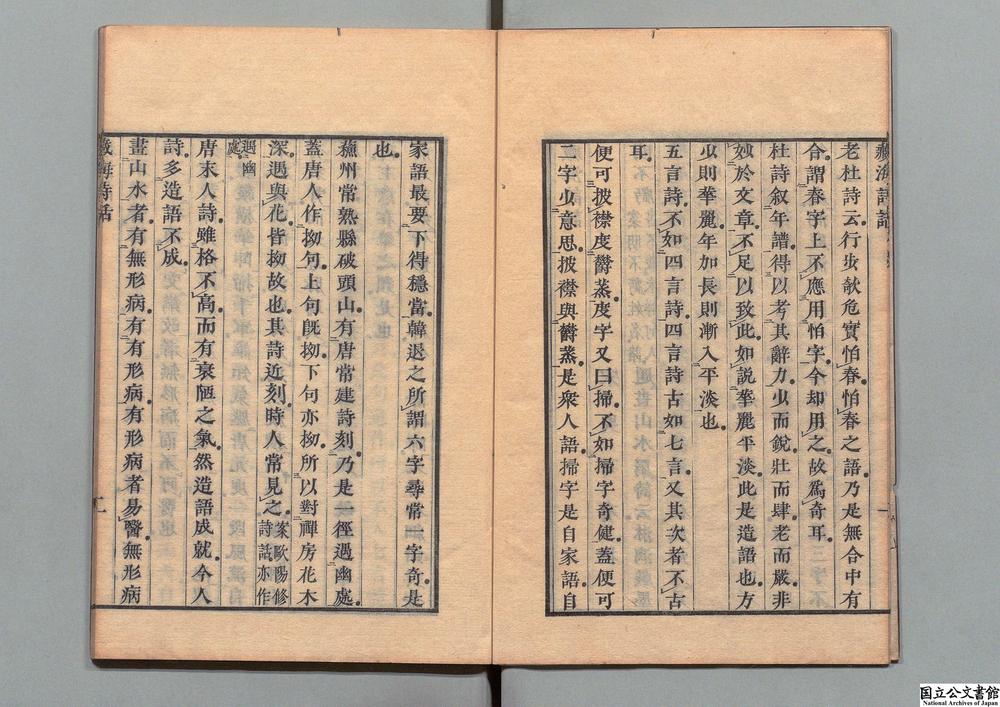 老杜詩云行步欹危實怕春怕春之語乃是無合中有
合謂春字上不應用怕字今却用之故爲奇耳
杜詩叙年譜得以考其辭力少而銳壯而肆老而嚴非
妙於文章不足以致此如說華麗平淡此是造語也方
少則華麗年加長則漸入平淡也
五言詩不如四言詩四言詩古如七言又其次者不古
耳
便可披襟度鬱蒸度字又曰掃不如掃字奇健蓋便可
二字少意思披襟與鬱蒸是衆人語掃字是自家語自
家語最要下得穩當韓退之所謂六字尋常一字奇是
也
蘇州常熟縣破頭山有唐常建詩刻乃是一徑遇幽處
蓋唐人作拗句上句旣拗下句亦拗所以對禪房花木
深遇與花皆拗故也其詩近刻時人常見之案歐陽修
詩話亦作
遇幽
處
唐末人詩雖格不高而有衰陋之氣然造語成就今人
詩多造語不成
畫山水者有無形病有有形病有形病者易醫無形病
藏海詩話
二
国立公文書館
National Archives of Japan